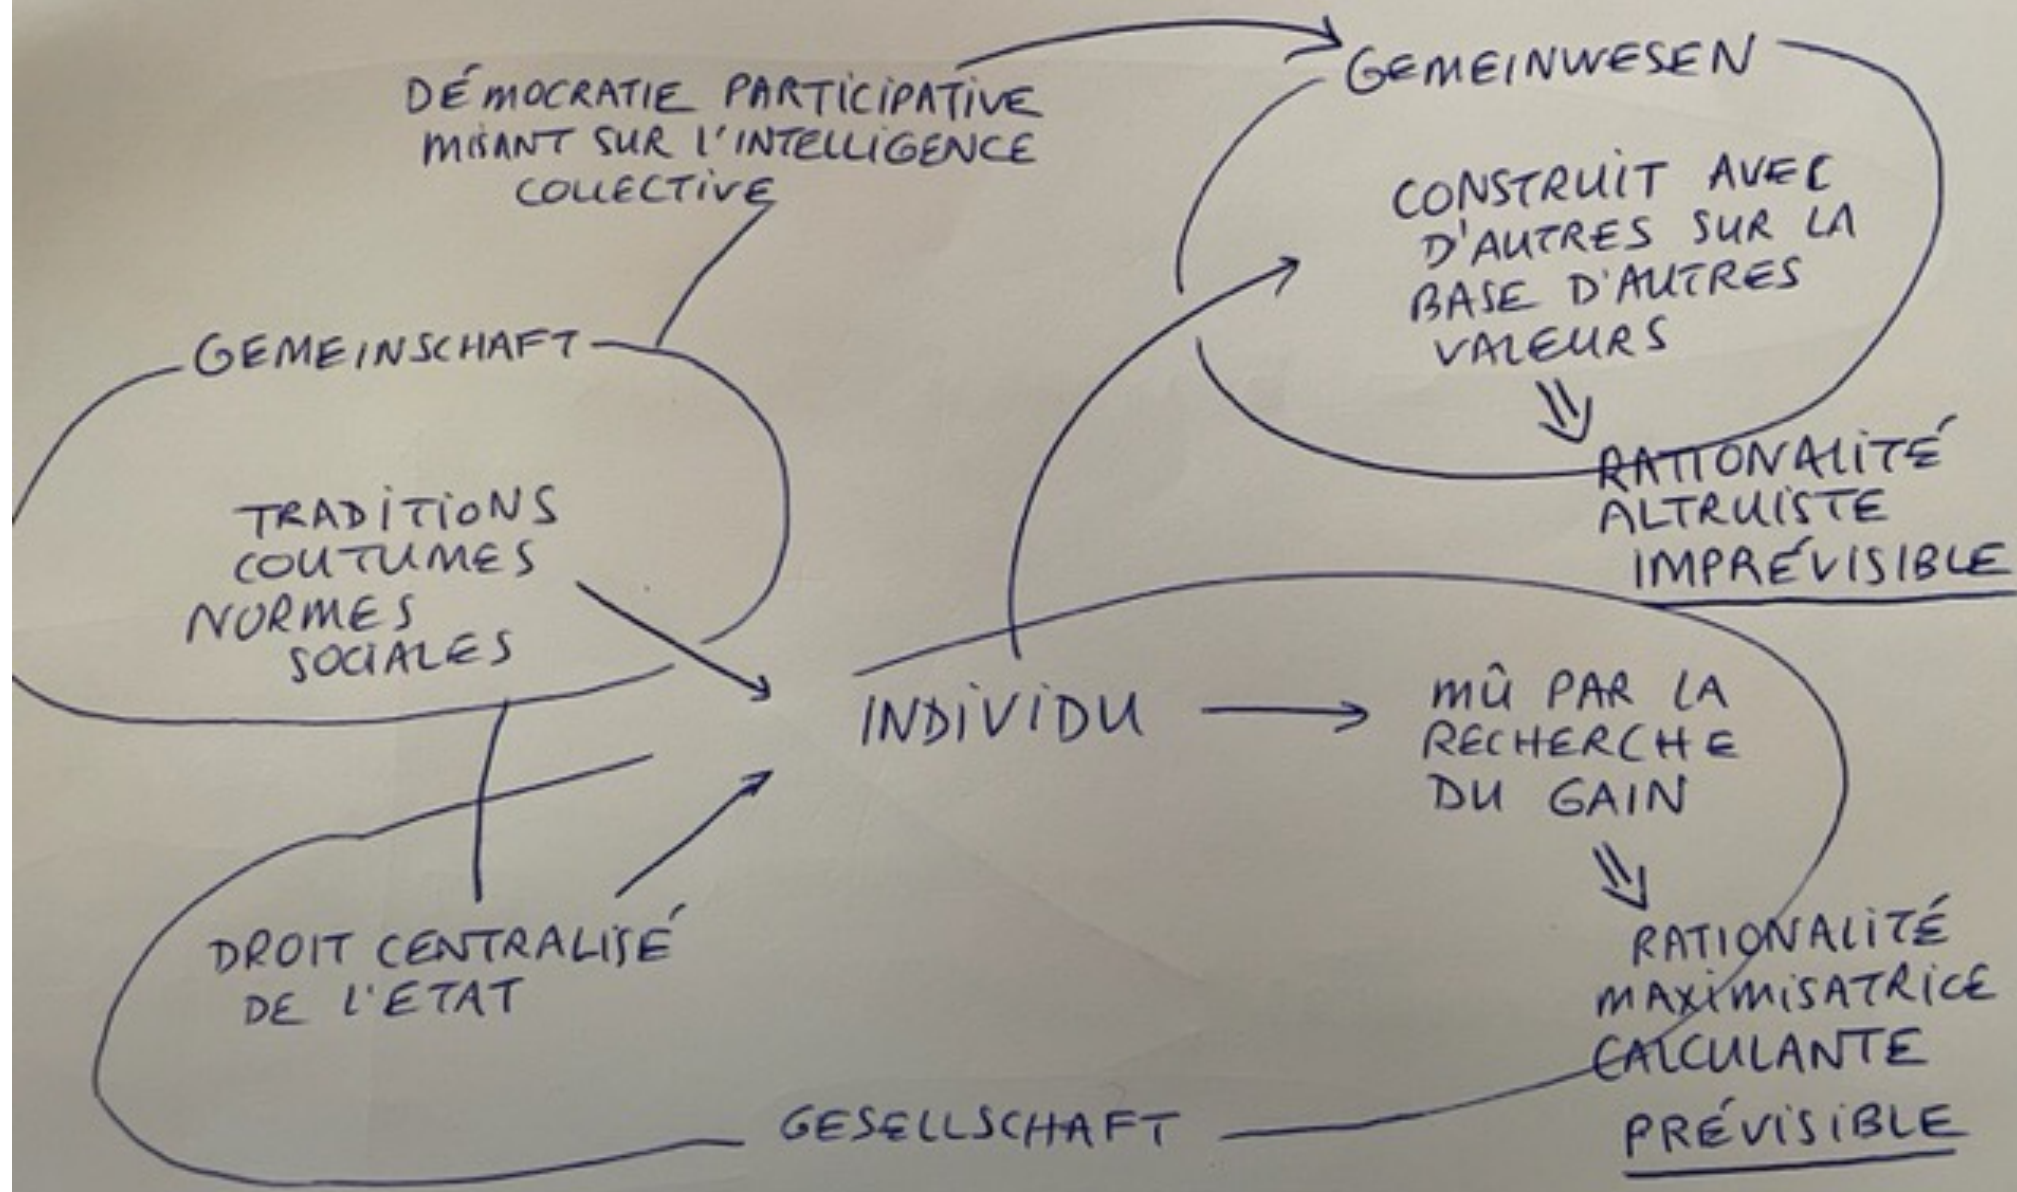 DÉMOCRATIE PARTICIPATIVE
MISANT SUR L'INTELLIGENCE
COLLECTIVE
GEMEINWESEN
CONSTRUIT AVEC
D'AUTRES SUR LA
BASE D'AUTRES
VALEURS
RATIONALITÉ
ALTRUISTE
IMPRÉVISIBLE
GEMEINSCHAFT
TRADITIONS
COUTUMES
NORMES
SOCIALES
INDIVIDU
MÛ PAR LA
RECHERCHE
DU GAIN
RATIONALITÉ
MAXIMISATRICE
CALCULANTE
PRÉVISIBLE
DROIT CENTRALISÉ
DE L'ETAT
GESELLSCHAFT